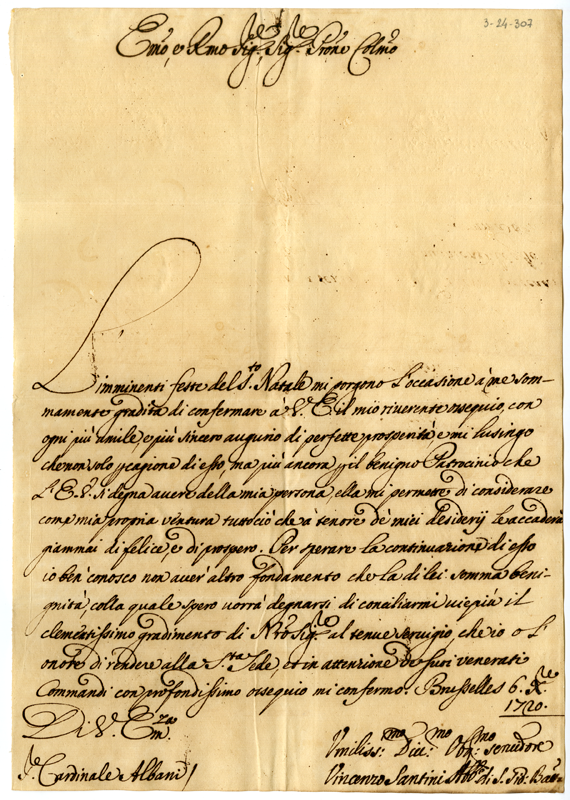 3-24-307
Emo, e Rmo Sig.re Sig.re Prone Colmo
L'imminenti feste del S.to Natale mi porgono l'occasione à me som-
mamente gradita di confermare à V. E. il mio riverente ossequio, con
ogni più umile, e più sincero augurio di perfette prosperità, e mi lusingo
che non solo cagione di esso, ma più ancora il benigno Patrocinio che
L'E. V. si degna avere della mia persona, ella mi permette di considerare
come mia propria ventura tuttociò che à tenore de' miei desiderij le accaderà
giammai di felice, e di prospero. Per sperare la continuazione di esso
io ben conosco non aver altro fondamento che la di lei somma beni-
gnità, colla quale spero vorrà degnarsi di conciliarmi viepiù il
clementissimo gradimento di Nro Sig.re al tenue servigio, che io ò l'
onore di rendere alla S.ta Sede, et in attenzione de suoi venerati
Commandi con profondissimo ossequio mi confermo. Brusselles 6. X.re
1720.
Di V. Em.za
Umiliss.mo Div.mo Obb.mo servidore
S.re Cardinale Albani
Vincenzo Santini Abb.e di S.